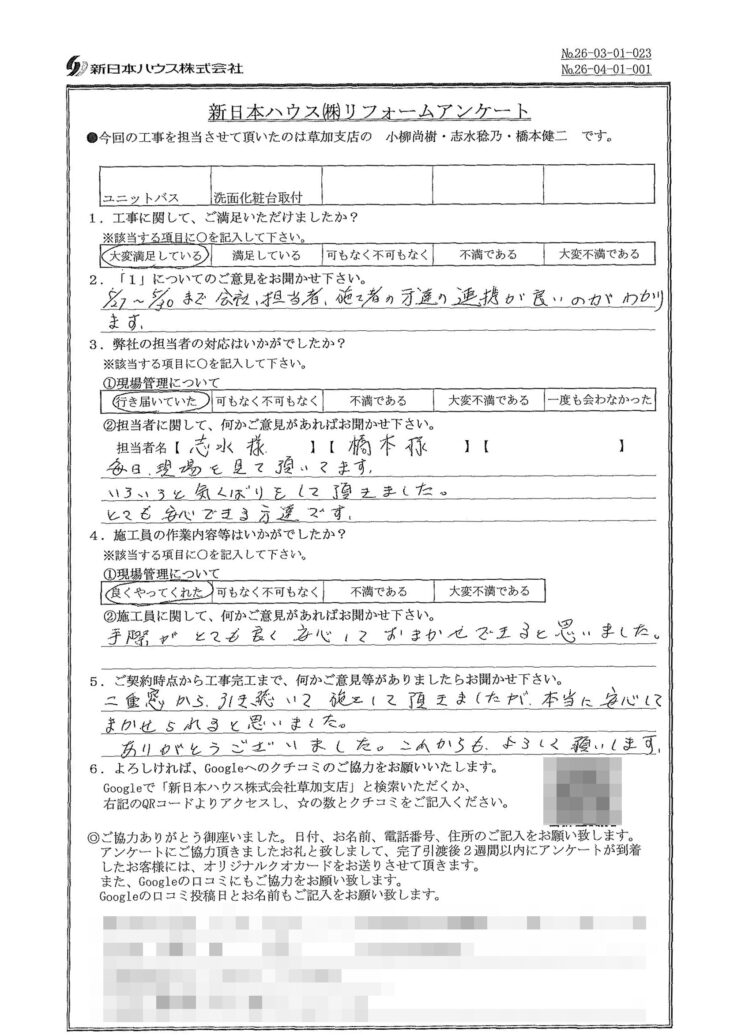 新日本ハウス株式会社
№26-03-01-023
№26-04-01-001
新日本ハウス㈱リフォームアンケート
●今回の工事を担当させて頂いたのは草加支店の 小柳尚樹・志水稔乃・橋本健二 です。
ユニットバス 洗面化粧台取付
1．工事に関して、ご満足いただけましたか？
※該当する項目に〇を記入して下さい。
大変満足している 満足している 可もなく不可もなく 不満である 大変不満である
2．「1」についてのご意見をお聞かせ下さい。
5/27～5/30まで会社、担当者、施工者の方達の連携が良いのがわかり
ます。
3．弊社の担当者の対応はいかがでしたか？
※該当する項目に〇を記入して下さい。
①現場管理について
行き届いていた 可もなく不可もなく 不満である 大変不満である 一度も会わなかった
②担当者に関して、何かご意見があればお聞かせ下さい。
担当者名【 志水様 】【 橋本様 】【 】
毎日、現場を見て頂いてます。
いろいろと気くばりをして頂きました。
とても安心できる方達です。
4．施工員の作業内容等はいかがでしたか？
※該当する項目に〇を記入して下さい。
①現場管理について
良くやってくれた 可もなく不可もなく 不満である 大変不満である
②施工員に関して、何かご意見があればお聞かせ下さい。
手際がとても良く安心しておまかせできると思いました。
5．ご契約時点から工事完工まで、何かご意見等がありましたらお聞かせ下さい。
二重窓から、引き続いて施工して頂きましたが、本当に安心して
まかせられると思いました。
ありがとうございました。これからも、よろしく願いします。
6．よろしければ、Googleへのクチコミのご協力をお願いいたします。
Googleで「新日本ハウス株式会社草加支店」と検索いただくか、
右記のQRコードよりアクセスし、☆の数とクチコミをご記入ください。
◎ご協力ありがとう御座いました。日付、お名前、電話番号、住所のご記入をお願い致します。
アンケートにご協力頂きましたお礼と致しまして、完了引渡後２週間以内にアンケートが到着
したお客様には、オリジナルクオカードをお送りさせて頂きます。
また、Googleの口コミにもご協力をお願い致します。
Googleの口コミ投稿日とお名前もご記入をお願い致します。